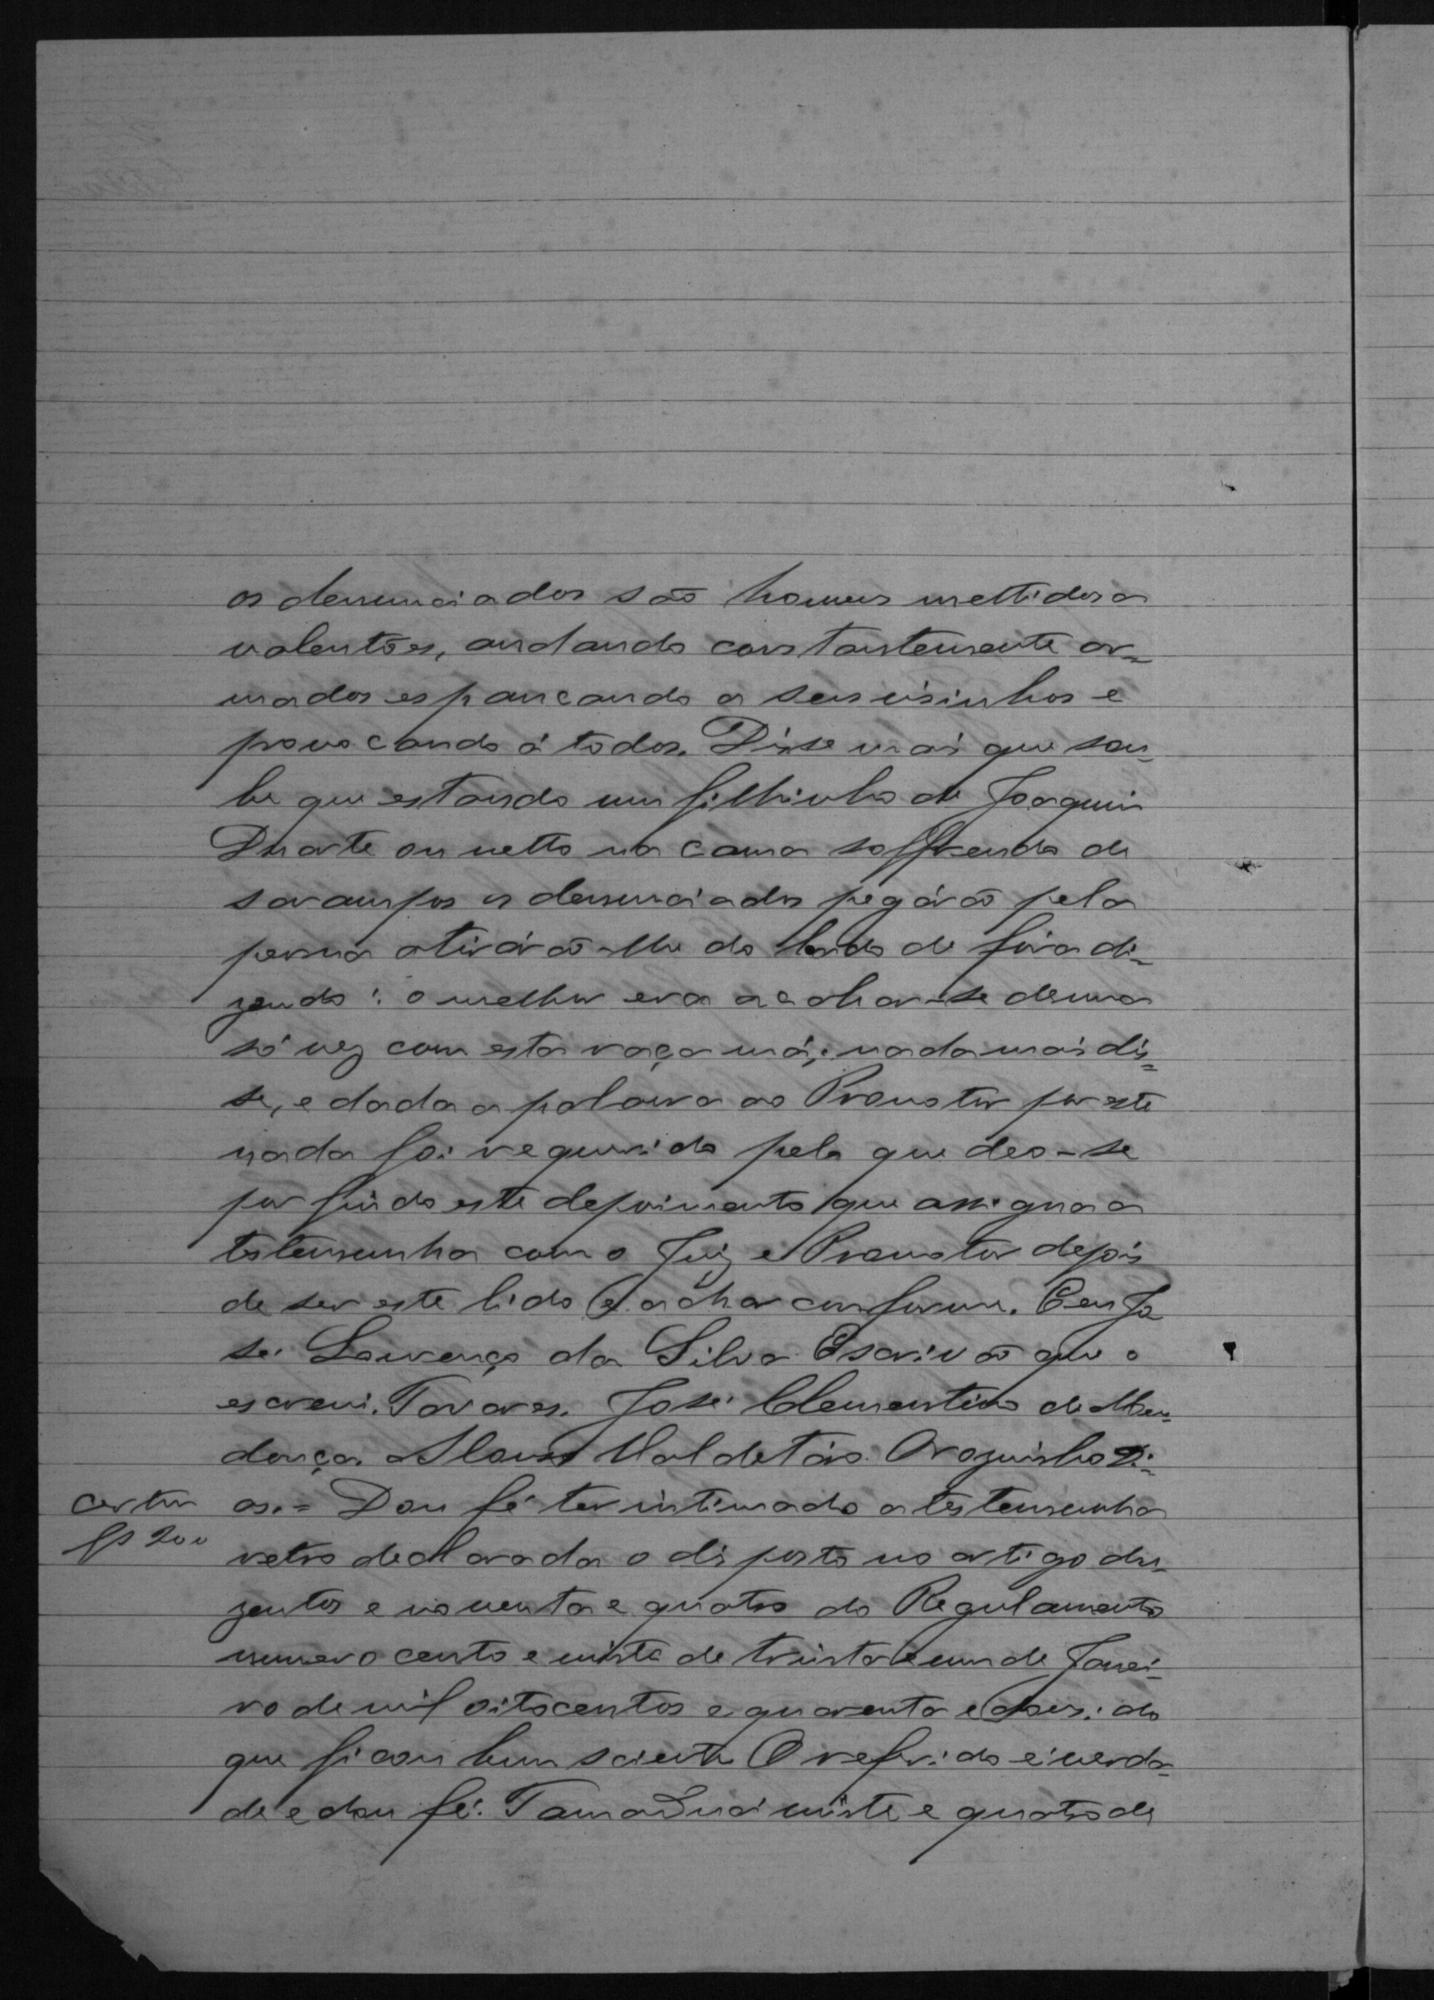 os denunciados são homens mettidos a
valentões, andando constantemente ar-
mados espancando a seus visinhos e
provocando á todos. Disse mais que sou-
be que estando um filhinho de Joaquim
Duarte ou netto na cama soffrendo de
sarampos os denunciados pegárão pela
perna atirárão-lhe do lado de fóra di-
zendo: o melhor era acabar-se de uma
só vez com esta raça má; nada mais dis-
se, e dada a palavra ao Promotor por este
nada foi requerido pelo que deo-se
por findo este depoimento que assigna a
testemunha com o Juiz e Promotor depois
de ser este lido e achar conforme. Eu Jo
sé Lourenço da Silva Escrivão que o
escrevi. Tavares. José Clementino de Men-
donça. Valdetáro
as.= Dou fé ter intimado a testemunha
retro declarada o disposto no artigo du-
zentos e noventa e quatro do Regulamento
numero cento e vinte de trinta e um de Janei-
ro de mil oitocentos e quarenta e dois: do
que ficou bem sciente O referido é verda-
de e dou fé. vinte e quatro de
200